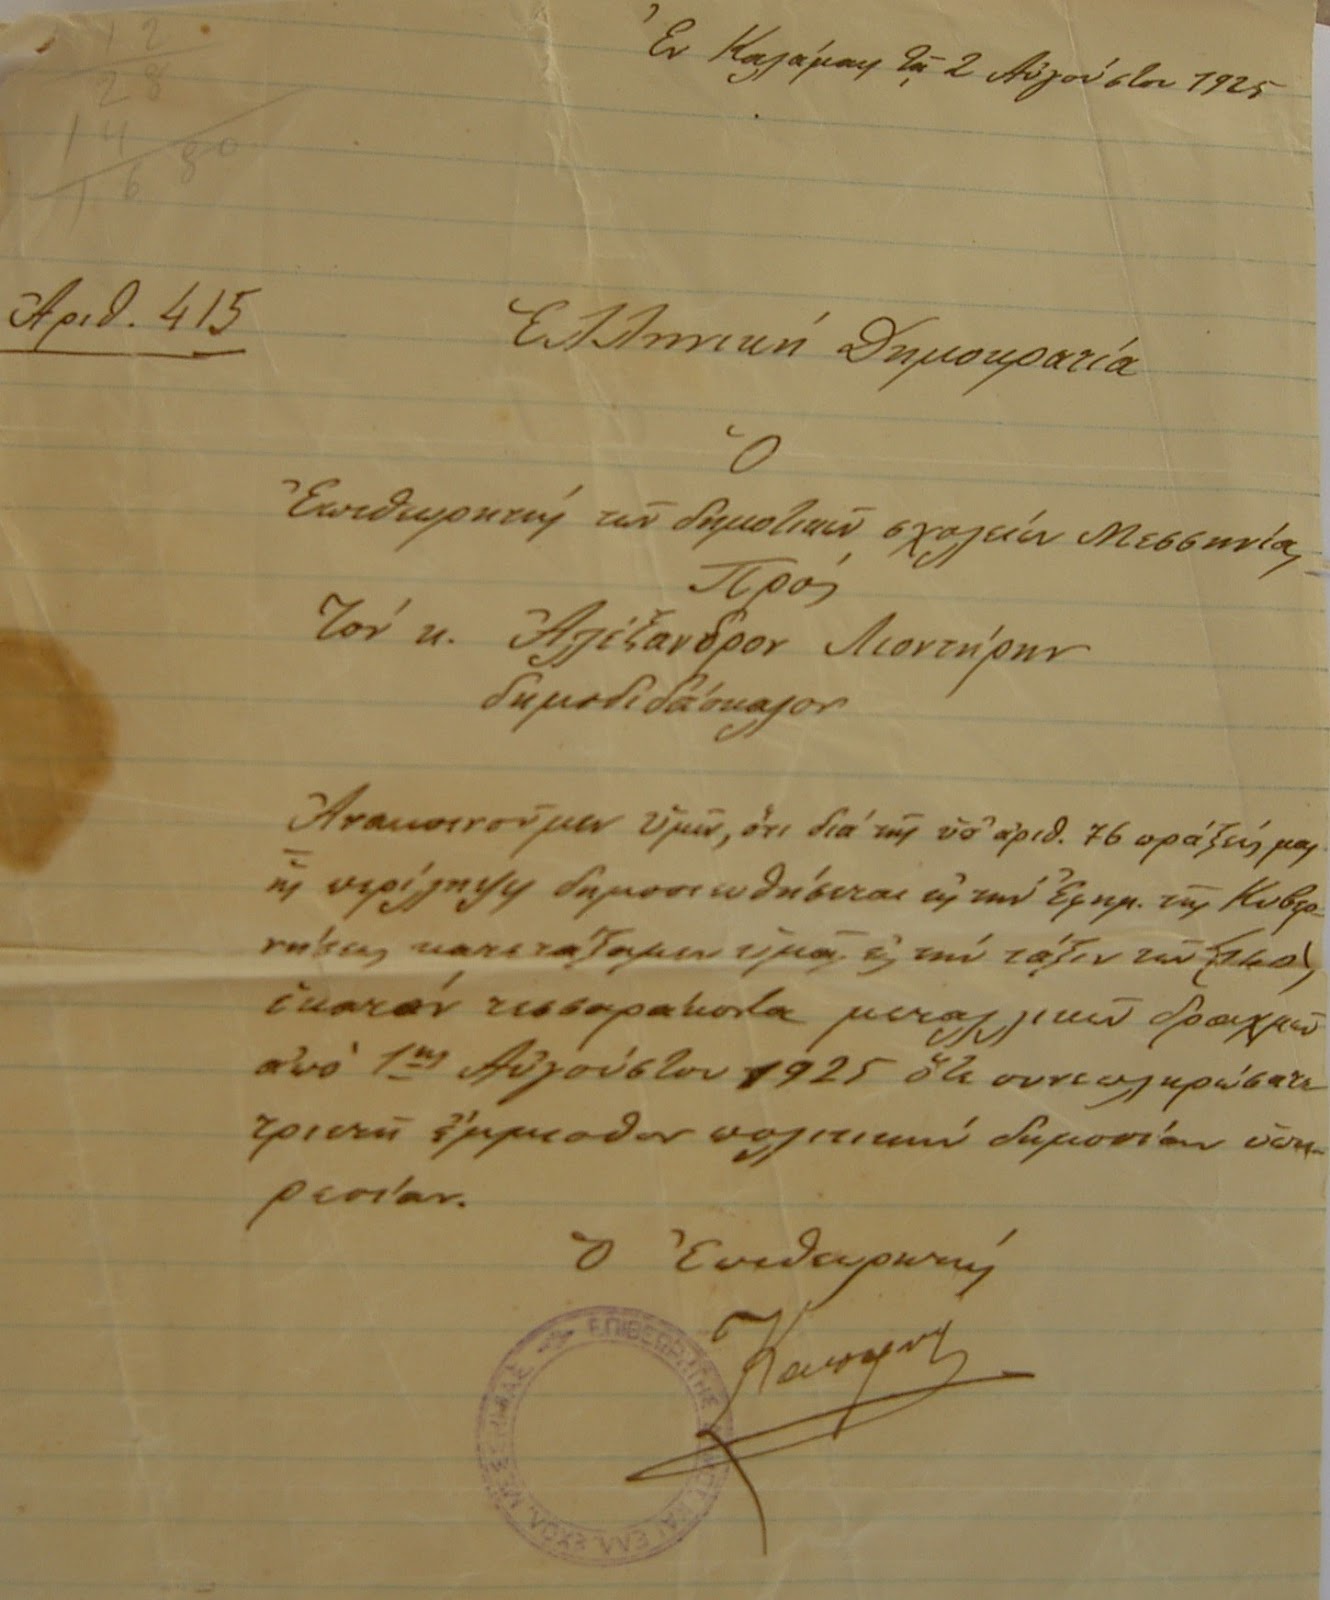 12
28
14
168 0
Ἐν Καλάμαις τῇ 2 Αὐγούστου 1925
Ἀριθ. 415
Ἑλληνική Δημοκρατία
Ὁ
Ἐπιθεωρητής τῶν δημοτικῶν σχολείων Μεσσηνίας
Πρός
Τόν κ. Ἀλέξανδρον Λιοντήρην
δημοδιδάσκαλον
Ἀνακοινοῦμεν ὑμῖν, ὅτι διά τῆς ὑπ' ἀριθ. 76 πράξεώς μας
ἧς περίληψις δημοσιευθήσεται εἰς τήν Ἐφημ. τῆς Κυβερ-
νήσεως κατετάξαμεν ὑμᾶς εἰς τήν τάξιν τῶν (140)
ἑκατόν τεσσαράκοντα μεταλλικῶν δραχμῶν
ἀπό 1ης Αὐγούστου 1925 ὅτε συνεπληρώσατε
τριετῆ ἔμμισθον πολιτικήν δημοσίαν ὑπη-
ρεσίαν.
Ὁ Ἐπιθεωρητής
ΕΠΙΘΕΩΡΗΤΗΣ ΔΗΜΟΤ. ΚΑΙ ΕΛΛ. ΣΧΟΛ. ΜΕΣΣΗΝΙΑΣ